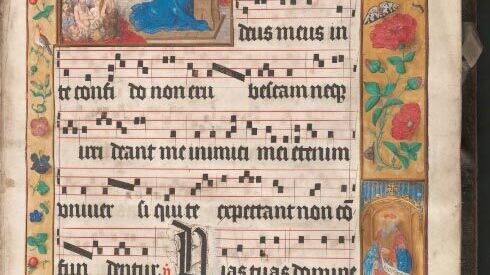 deus meus in
te confi do non eru bescam neq
irri deant me inimici mei etenim
vniuer si qui te expectant non cō
fun dentur ꝟ Uias tuas domine